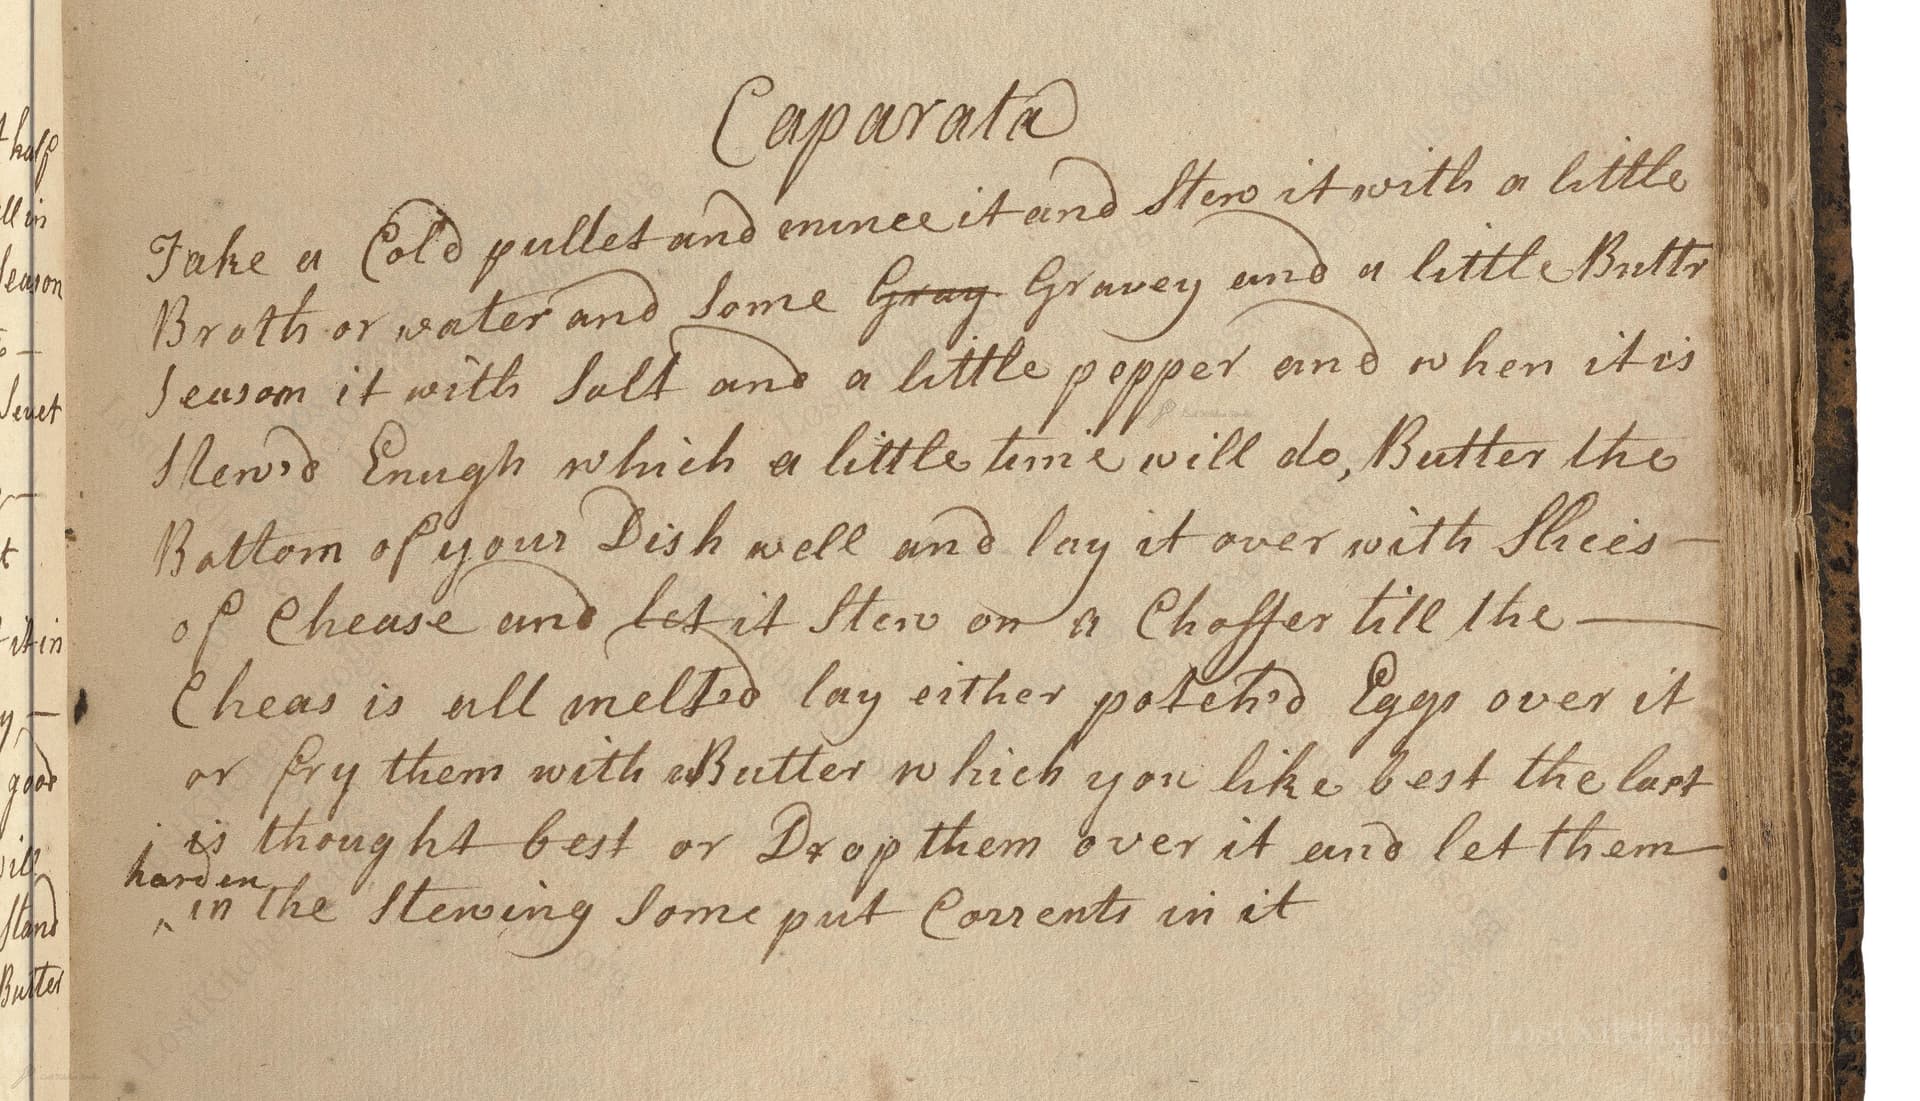 Caparata
Take a Cold pullet and mince it and Stew it with a little
Broth or water and Some Gray Gravey and a little Buttr
Season it with Salt and a little pepper and when it is
Stew'd Enugh which a little time will do, Butter the
Bottom of your Dish well and lay it over with Slices
of Chease and let it Stew on a Choffer till the
Cheas is all melted lay either potch'd Eggs over it
or fry them with Butter which you like best the last
is thought best or Drop them over it and let them
harden
in the Stewing Some put Corrents in it